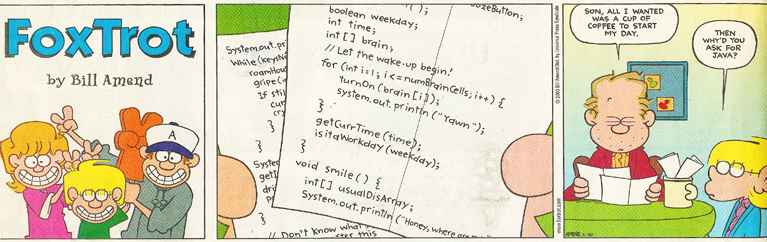 FoxTrot
by Bill Amend
A
System.out.pr
While (keysNo
roamHous
gripe(in
If stil
cur
cry
}
}
System
getI
dri
Po
}
// Don't know what
ster this
( );
ozeButton;
boolean weekday;
int time;
int [ ] brain;
// Let the wake-up begin!
for (int i=1; i<=numBrainCells; i++) {
turnOn (brain [i]);
system.out.println ("Yawn");
}
getCurrTime (time);
isitaWorkday (weekday);
}
void smile ( ) {
int[ ] usualDisArray;
System.out.println ("Honey, where are
© 2003 Bill Amend/Dist. by Universal Press Syndicate
www.foxtrot.com
SON, ALL I WANTED
WAS A CUP OF
COFFEE TO START
MY DAY.
THEN
WHY'D YOU
ASK FOR
JAVA?
AMEND 3-30